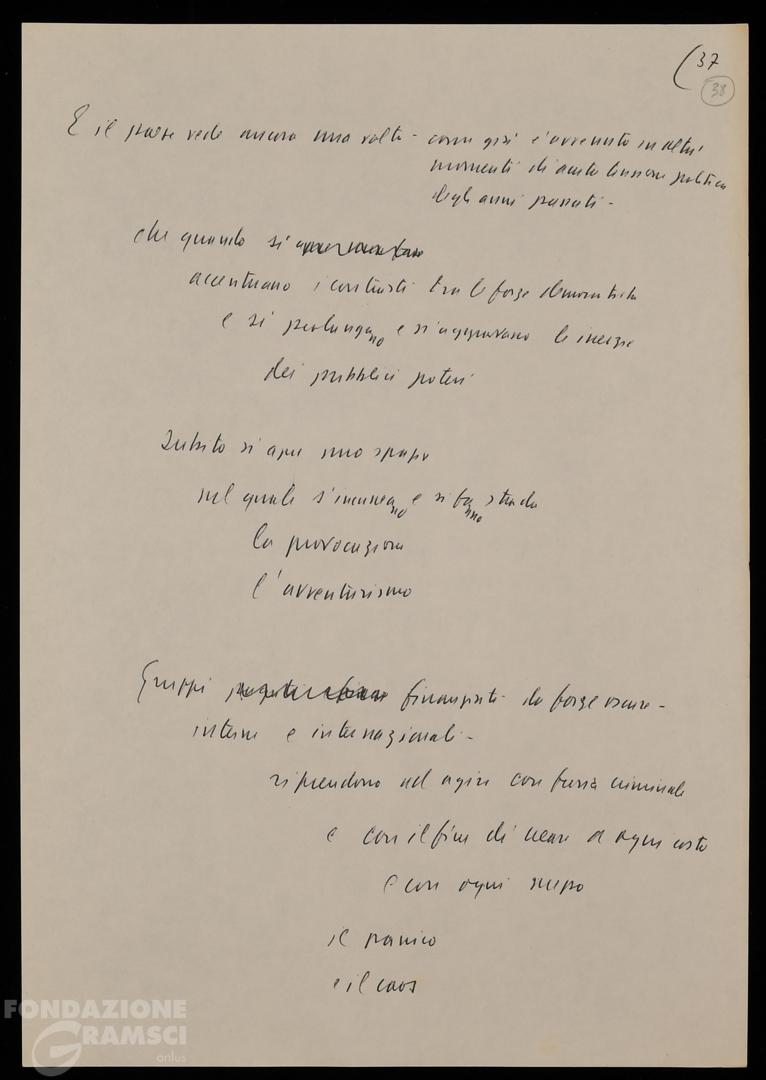 (37
38
E il paese vede ancora una volta - come già è avvenuto in altri
momenti di acuta tensione politica
degli anni passati -
che quando si
accentuano i contrasti tra le forze democratiche
e si prolungano e si aggravano le inerzie
dei pubblici poteri
Subito si apre uno spazio
nel quale s'incuneano e si fanno strada
la provocazione
l'avventurismo
Gruppi finanziati da forze oscure -
interne e internazionali -
riprendono ad agire con furia criminale
e con il fine di creare a ogni costo
e con ogni mezzo
il panico
e il caos
FONDAZIONE
GRAMSCI
onlus